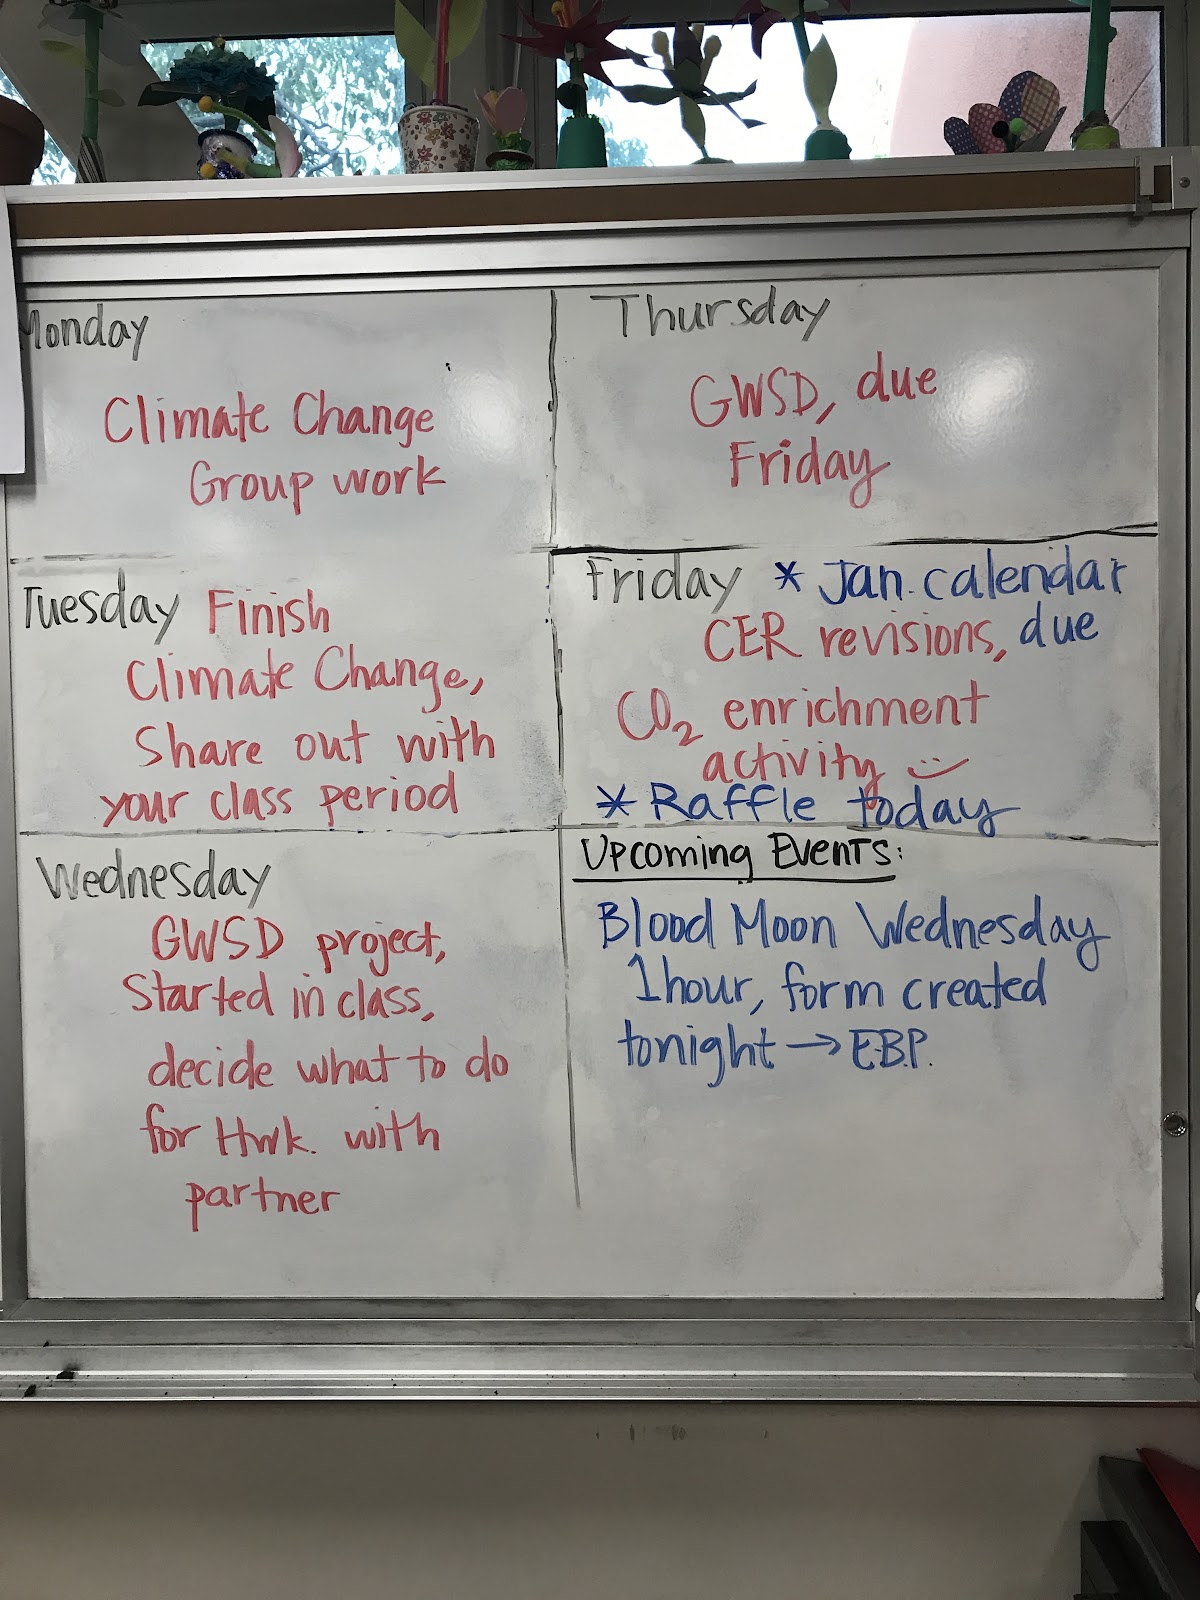 Monday
Climate Change
Group work
Tuesday Finish
Climate Change,
Share out with
your class period
Wednesday
GWSD project,
Started in class,
decide what to do
for Hwk. with
partner
Thursday
GWSD, due
Friday
Friday * Jan. calendar
CER revisions, due
CO₂ enrichment
activity
* Raffle today
Upcoming Events:
Blood Moon Wednesday
1hour, form created
tonight → E.B.P.